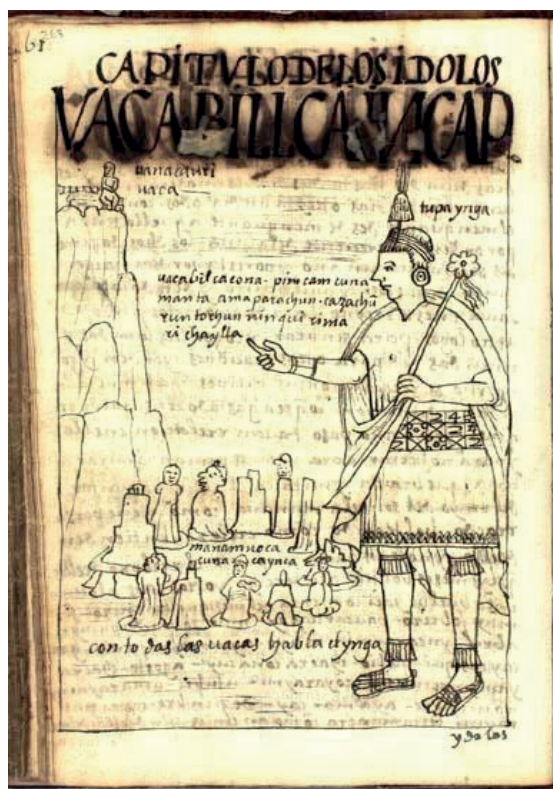 CAPITVLO DE LOS IDOLOS
VACA BILLCA INCAP
uanacauri
uaca
tupa ynga
uaca bilcacona · pim camcuna
manta ama parachun · cazachū
runtochun ninqui rima
ri chaylla
manam noca
cuna ca ynca
con todas las uacas habla el ynga
ydolos